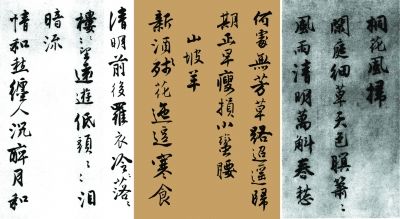 桐花風掃
閑庭細草天色暝
風雨清明萬斛春愁
何處無芳草路迢遙歸
期正早瘦損小蠻腰
山坡羊
新酒殘花迤逗寒食
清明前後羅衣冷落
樓望遠遊低頭淚
暗流
情和愁纏人沉醉月和